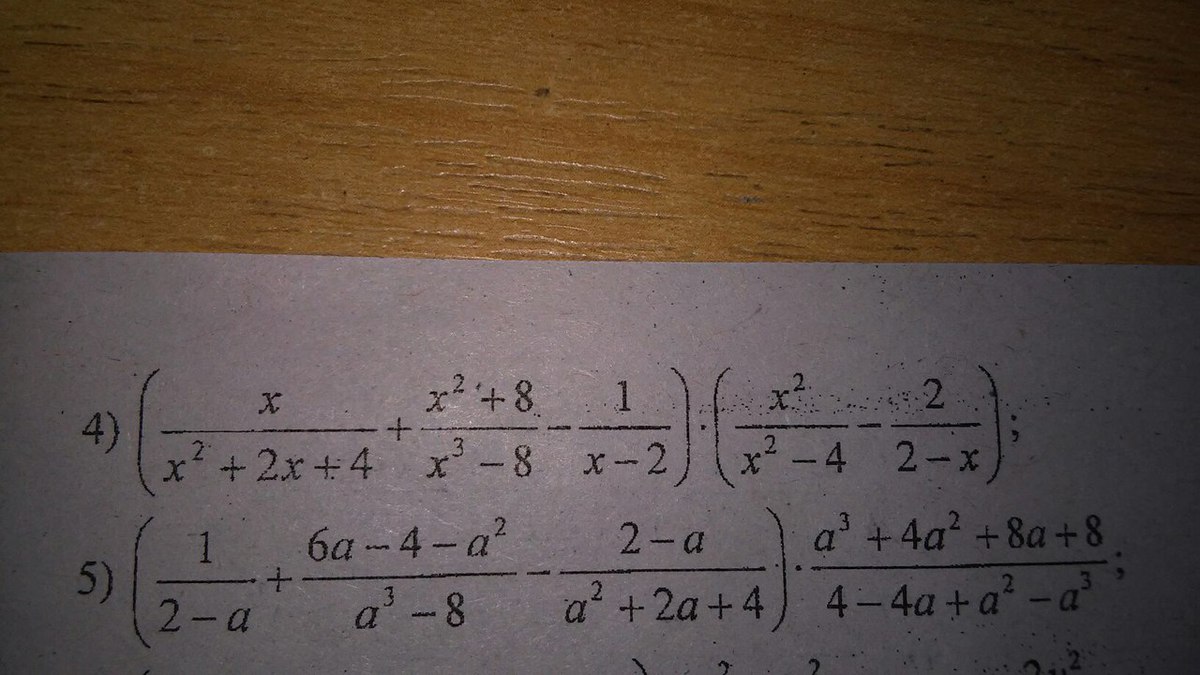 4) \left( \frac{x}{x^2+2x+4} + \frac{x^2+8}{x^3-8} - \frac{1}{x-2} \right) \cdot \left( \frac{x^2}{x^2-4} - \frac{2}{2-x} \right);
5) \left( \frac{1}{2-a} + \frac{6a-4-a^2}{a^3-8} - \frac{2-a}{a^2+2a+4} \right) \cdot \frac{a^3+4a^2+8a+8}{4-4a+a^2-a^3};